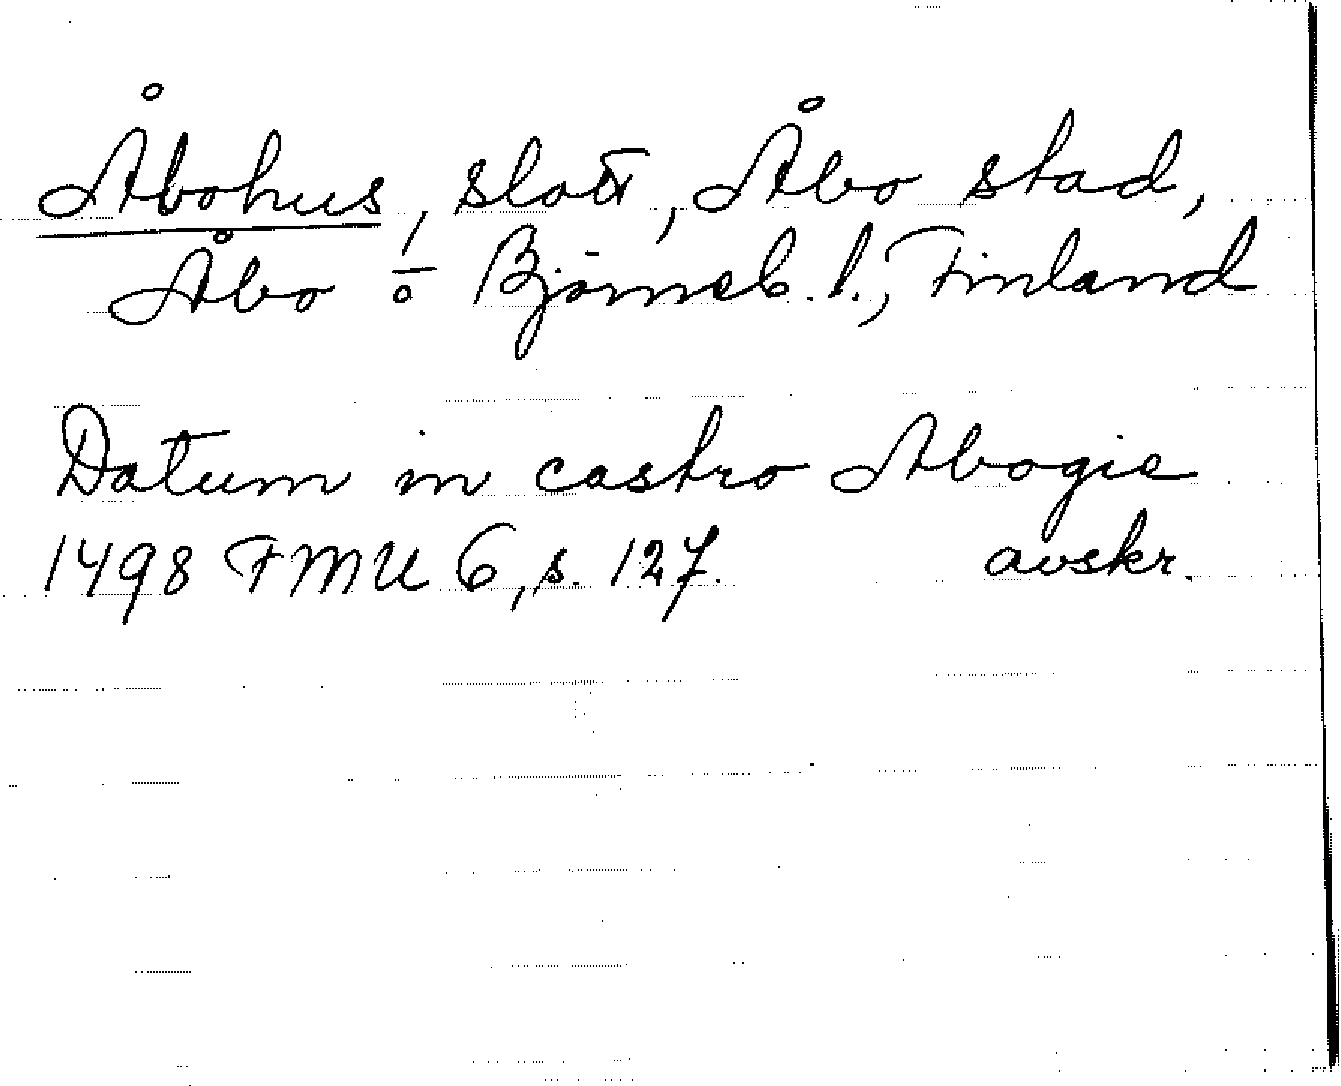 Åbohus, slott, Åbo stad,
Åbo o. Björneb. l., Finland
Datum in castro Abogie
1498 FMU 6, s. 127. avskr.